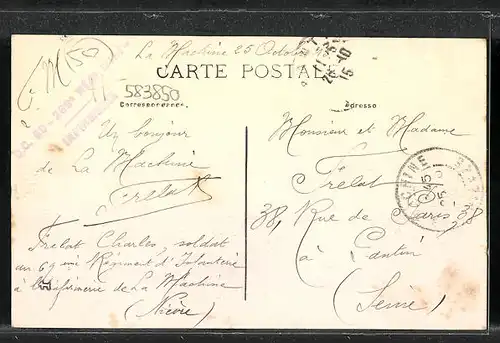 La Machine 25 Octobre
C.M 150
CARTE POSTALE
583850
Correspondance
Adresse
Un bonjour
de La Machine
Frelat
Frelat Charles, soldat
au 69 eme Régiment d'Infanterie
à l'infirmerie de La Machine
(Nièvre)
Monsieur et Madame
Frelat
38, Rue de Paris 38
à Pantin
(Seine)